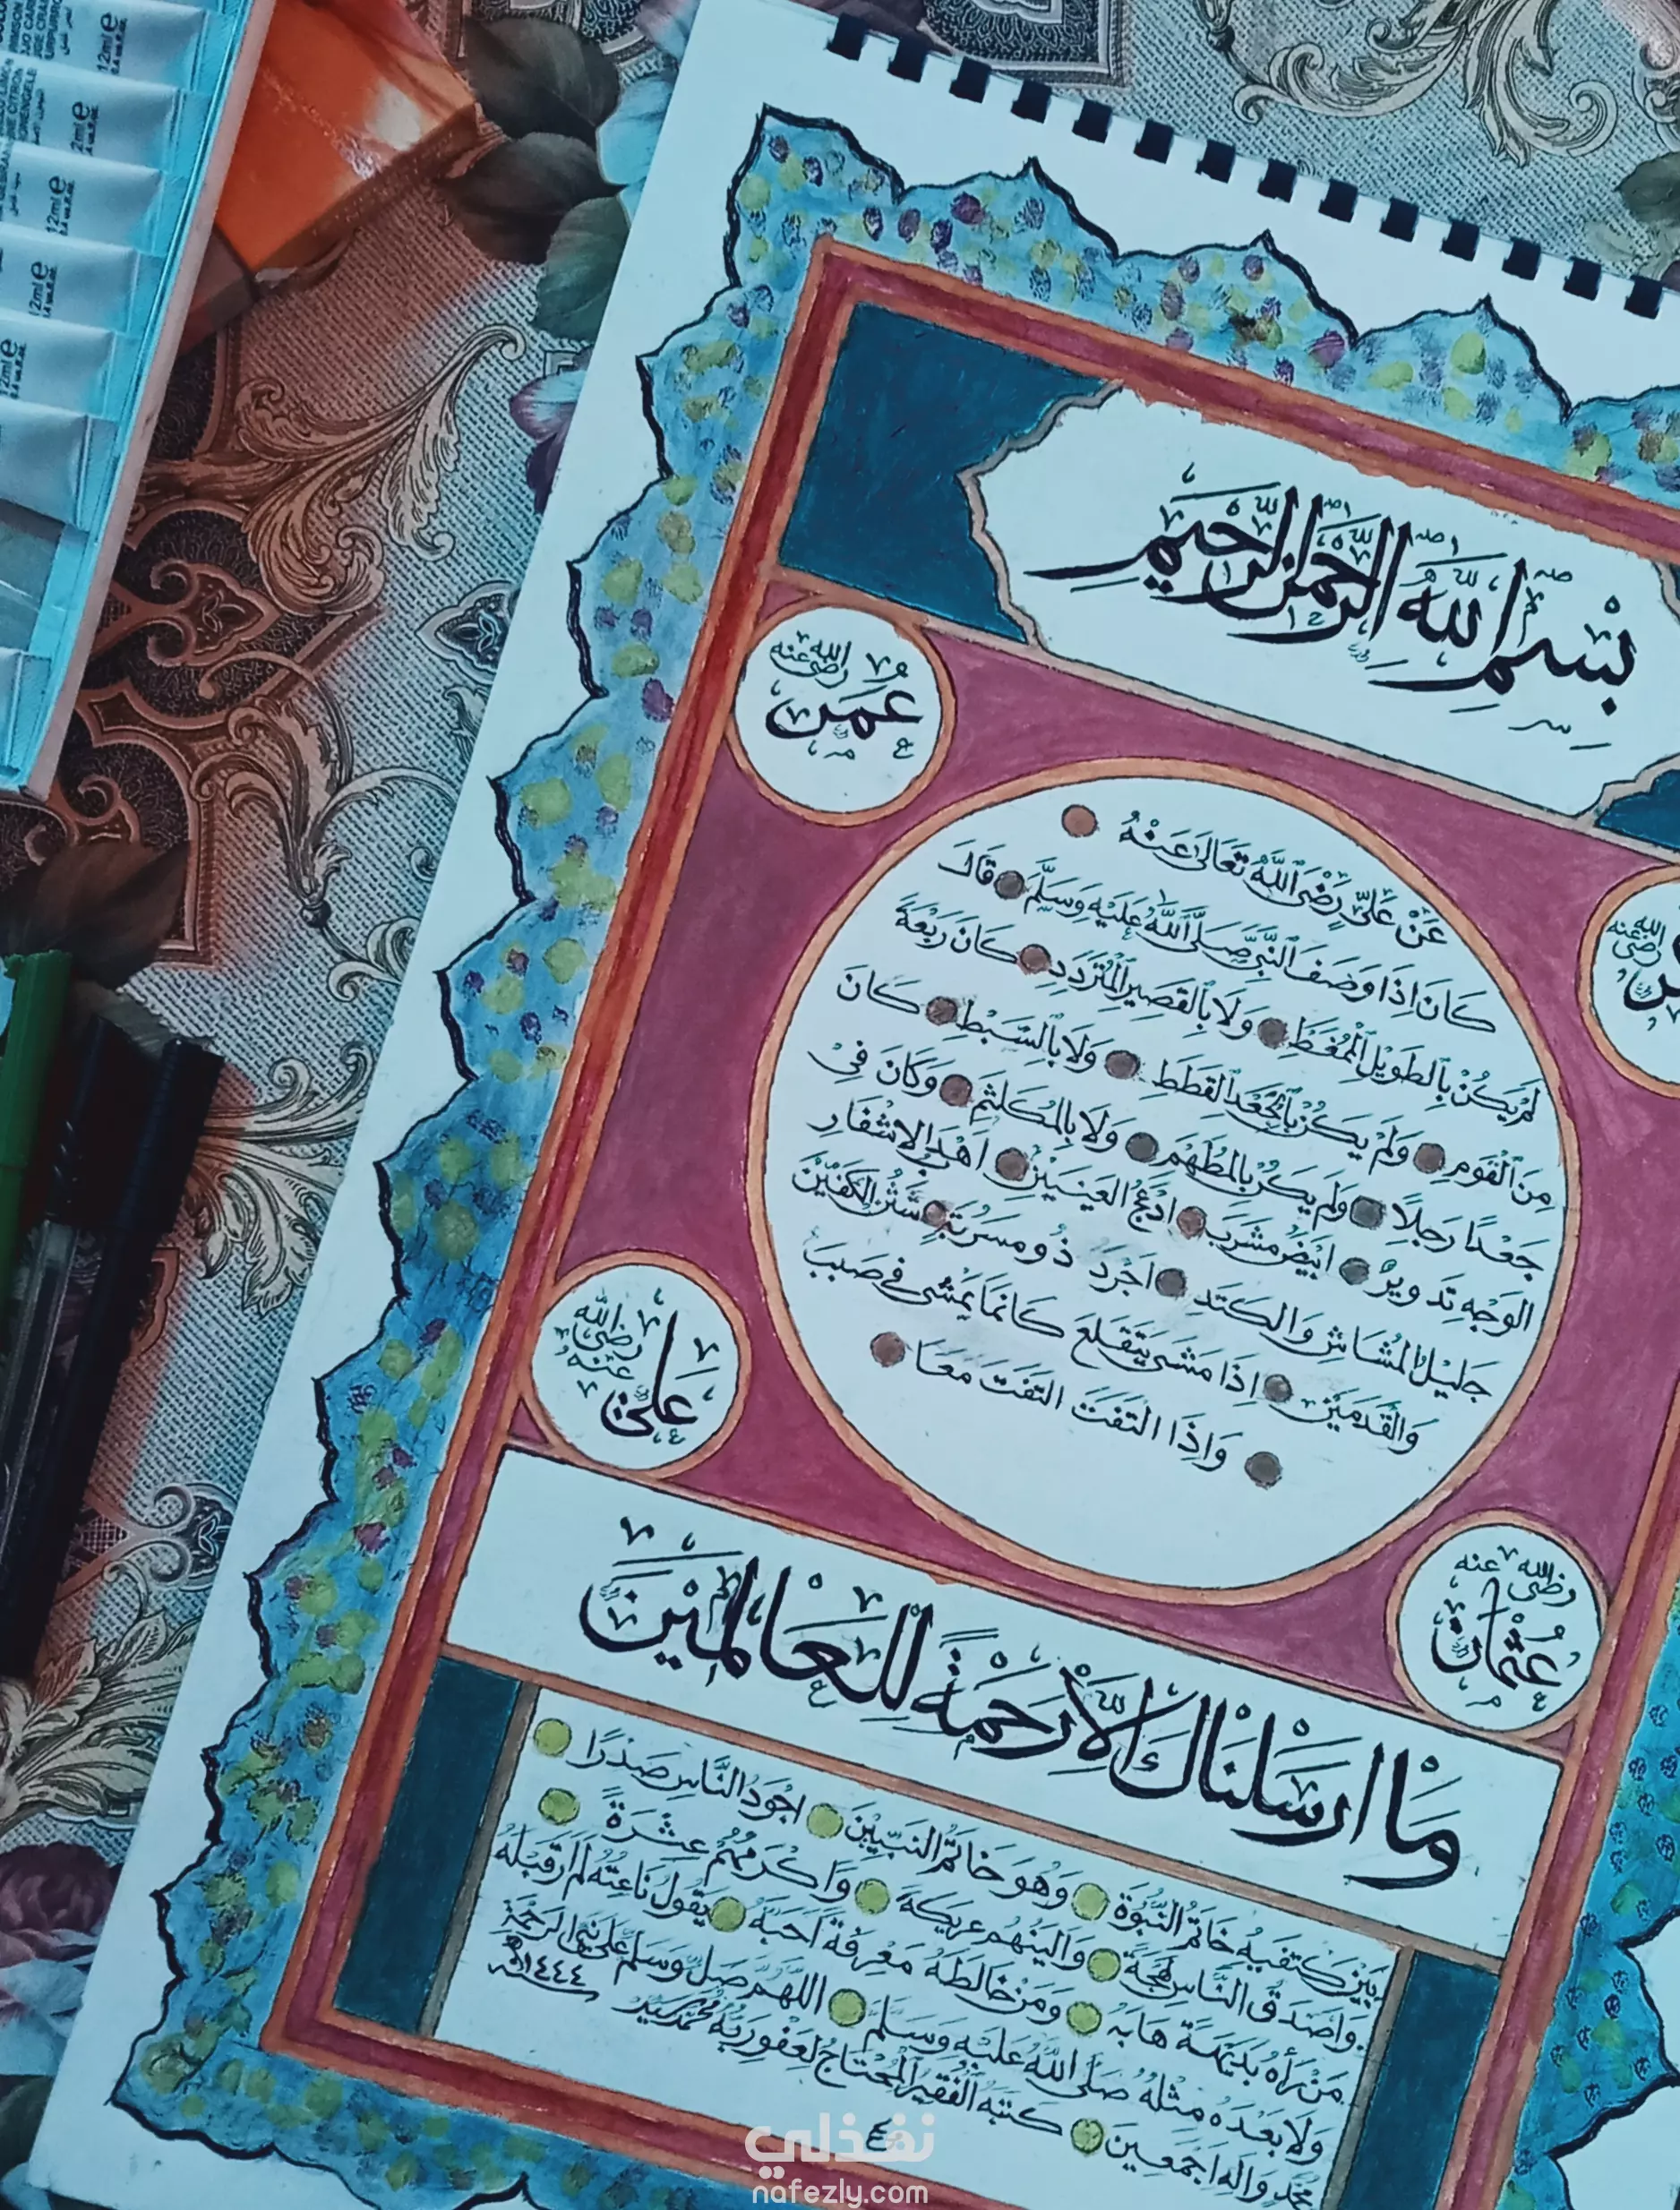 بِسْمِ اللَّهِ الرَّحْمٰنِ الرَّحِيمِ
عُمَر رضى الله عنه
رضى الله عنه
عَنْ عَلِيٍّ رَضْىَ اللَّهُ تَعَالَى عَنْهُ
كَانَ اِذَا وَصَفَ النَّبِيَّ صَلَّى اللَّهُ عَلَيْهِ وَسَلَّمَ قَالَ
لَمْ يَكُنْ بِالطَوِيلِ الْمُمَّغِطِ وَلَا بِالقَصِيرِ الْمُتَرَدِدِ كَانَ رَبْعَةً
مِنَ الْقَوْمِ وَلَمْ يَكُنْ بِالْجَعْدِ القَطَطِ وَلَا بِالسَّبْطِ كَانَ
جَعْدًا رَجِلًا وَلَم يَكُنْ بِالمُطَهَمِ وَلَا بِالمُكَلثَمِ وَكَانَ فِىْ
الوَجْهِ تَدْوِيرٌ اَبْيَضُ مُشْرَبٌ اَدْعَجُ العَيْنَيْنِ اَهْدَبُ الاَشْفَارِ
جَلِيلُ المُشَاشِ وَالكَتَدِ اَجْرَدُ ذُو مَسْرُبَةٍ شَثْنُ الكَفَّيْنِ
وَالْقَدَمَيْنِ اِذَا مَشَى يَتَقَلَعُ كَانَمَا يَمْشِى فِى صَبَبٍ
وَاِذَا التَفَتَ التَفَتَ مَعًا
عَلِي رَضِىَ اللَّه عَنْهُ
عُثْمَان رضى الله عنه
وَمَا اَرْسَلْنَاكَ اِلَّا رَحْمَةً لِلْعَالَمِيْنَ
بَيْنَ كَتِفَيْهِ خَاتَمُ النُّبُوَةِ وَهُوَ خَاتَمُ النَبِيِّيْنَ اَجْوَدُ النَّاسِ صَدْرًا
وَاَصْدَقُ النَّاسِ لَهْجَةً وَاَلْيَنُهُم عَرِيكَةً وَاَكْرَمُهُمْ عِشْرَةً
مَنْ رَأَهُ بَدِيهَةً هَابَهُ وَمَنْ خَالَطَهُ مَعْرِفَةً اَحَبَهُ يَقُولُ نَاعِتُهُ لَمْ اَرَ قَبْلَهُ
وَلَا بَعْدَهُ مِثْلَهُ صَلَّى اللَّهُ عَلَيْهِ وَسَلَّمَ اللهم صَلِّ وَسَلِم عَلَى نَبِىِّ الرَحْمَةِ
مُحَمَّدٍ وَاٰلِهِ اَجْمَعِينَ كَتَبَهُ الْفَقِيرُ الْمُحْتَاجُ لِعَفْوِ رَبِهِ مُحَمَّد ١٤٤٤
12ml e
12ml e
12ml e
12ml e
نفذلي
nafezly.com